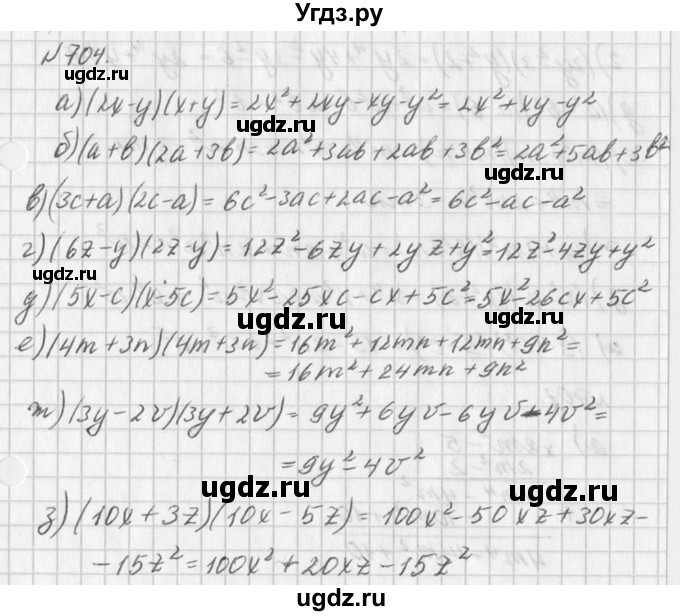 Угдз.ру
№704.
а) (2x-y)(x+y)=2x²+2xy-xy-y²=2x²+xy-y²
ugdz.ru ugdz.ru
б) (a+b)(2a+3b)=2a²+3ab+2ab+3b²=2a²+5ab+3b²
ugdz.ru
в) (3c+a)(2c-a)=6c²-3ac+2ac-a²=6c²-ac-a²
ugdz.ru ugdz.ru
г) (6z-y)(2z-y)=12z²-6zy+2yz+y²=12z²-4zy+y²
ugdz.ru
д) (5x-c)(x-5c)=5x²-25xc-cx+5c²=5x²-26cx+5c²
ugdz.ru ugdz.ru
е) (4m+3n)(4m+3n)=16m²+12mn+12mn+9n²=
=16m²+24mn+9n²
ugdz.ru
ж) (3y-2v)(3y+2v)=9y²+6yv-6yv-4v²=
ugdz.ru ugdz.ru
=9y²-4v²
ugdz.ru
з) (10x+3z)(10x-5z)=100x²-50xz+30xz-
ugdz.ru ugdz.ru
-15z²=100x²+20xz-15z²
ugdz.ru